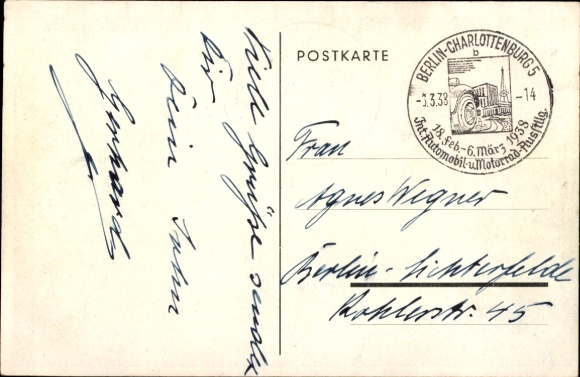 Viele Grüße sendet
Dir
Dein Sohn
Gerhard
POSTKARTE
BERLIN-CHARLOTTENBURG 5
b
-5.3.38 -14
18. Feb.-6. März 1938
Int. Automobil-u. Motorrad-Ausstllg.
Frau
Agnes Wegner
Berlin-Lichterfelde
Kohlerstr. 45